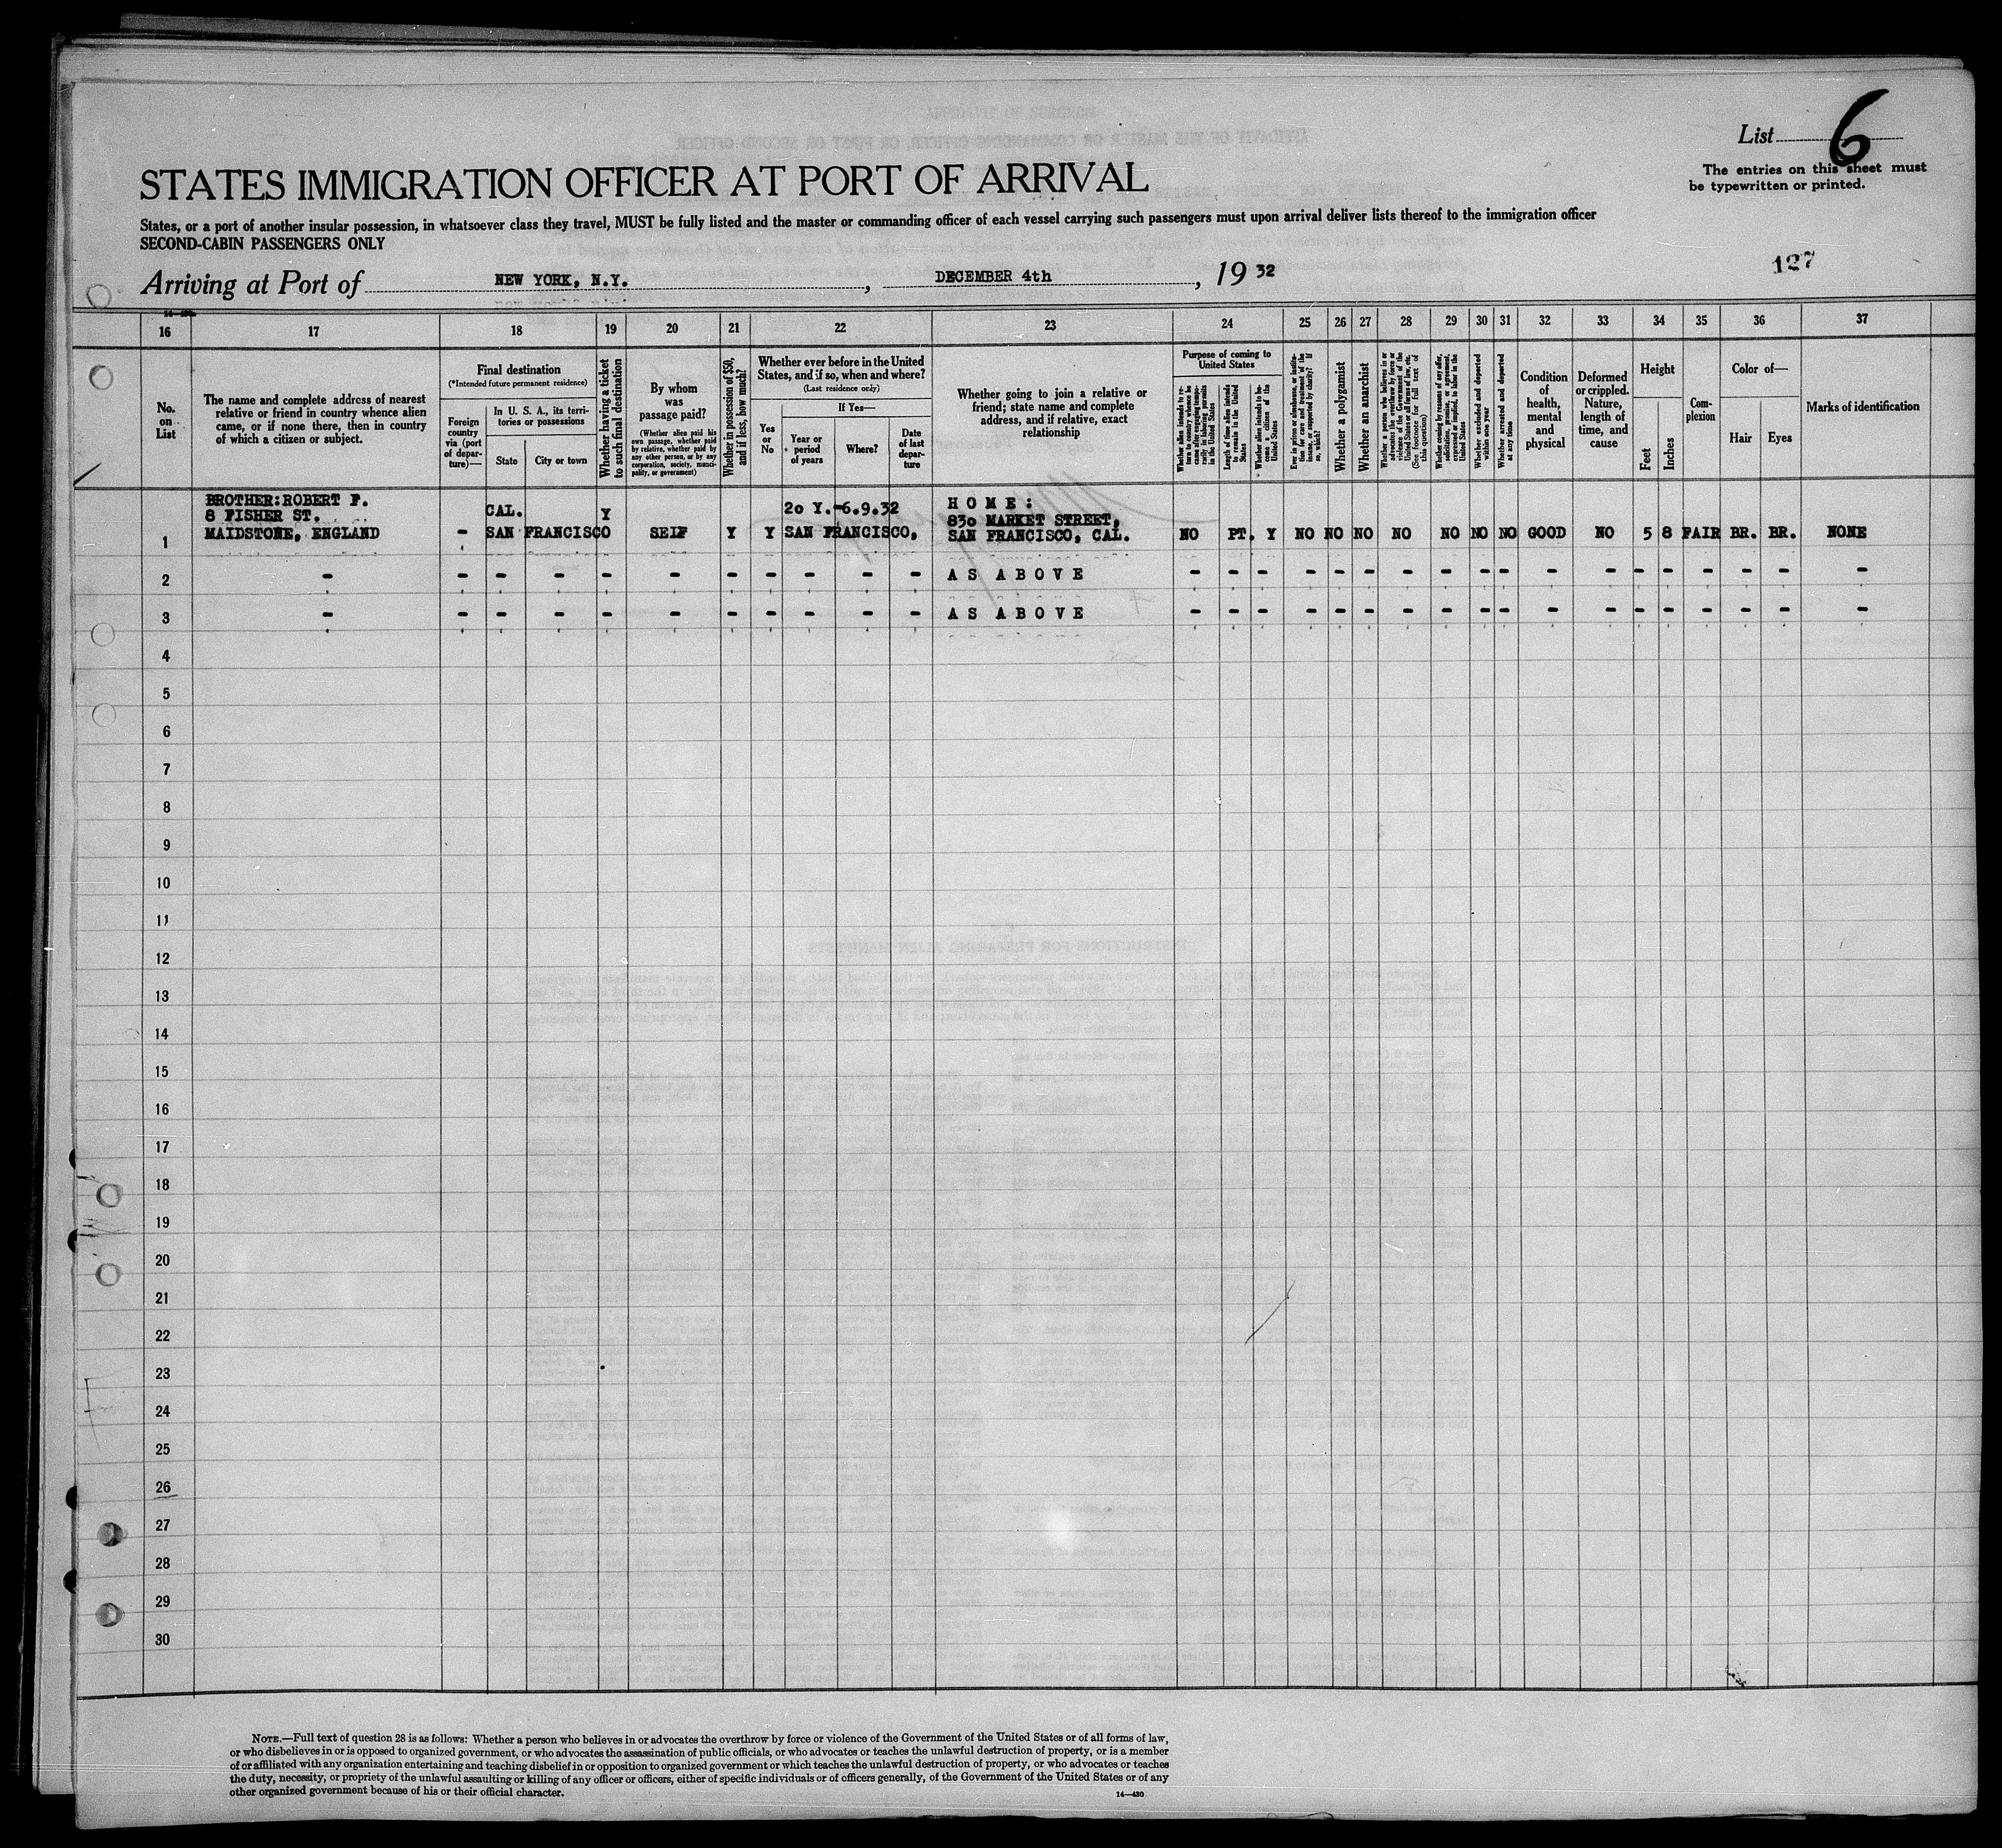 List 6
The entries on this sheet must
be typewritten or printed.
STATES IMMIGRATION OFFICER AT PORT OF ARRIVAL
States, or a port of another insular possession, in whatsoever class they travel, MUST be fully listed and the master or commanding officer of each vessel carrying such passengers must upon arrival deliver lists thereof to the immigration officer
SECOND-CABIN PASSENGERS ONLY
127
Arriving at Port of NEW YORK, N.Y. , DECEMBER 4th , 19 32
16 17 18 19 20 21 22 23 24 25 26 27 28 29 30 31 32 33 34 35 36 37
No.
on
List
The name and complete address of nearest
relative or friend in country whence alien
came, or if none there, then in country
of which a citizen or subject.
Final destination
(*Intended future permanent residence)
Foreign
country
via (port
of depar-
ture)—
In U. S. A., its terri-
tories or possessions
State
City or town
Whether having a ticket
to such final destination
By whom
was
passage paid?
(Whether alien paid his
own passage, whether paid
by relative, whether paid by
any other person, or by any
corporation, society, munici-
pality, or government)
Whether in possession of $50,
and if less, how much?
Whether ever before in the United
States, and if so, when and where?
(Last residence only)
Yes
or
No
If Yes—
Year or
period
of years
Where?
Date
of last
depar-
ture
Whether going to join a relative or
friend; state name and complete
address, and if relative, exact
relationship
Purpose of coming to
United States
Whether alien intends to re-
turn to country whence he
came after engaging tempo-
rarily in laboring pursuits
in the United States
Length of time alien intends
to remain in the United
States
Whether alien intends to be-
come a citizen of the
United States
Ever in prison or almshouse, or institu-
tion for care and treatment of the
insane, or supported by charity? If
so, which?
Whether a polygamist
Whether an anarchist
Whether a person who believes in or
advocates the overthrow by force or
violence of the Government of the
United States or all forms of law, etc.
(See footnote for full text of
this question)
Whether coming by reasons of any offer,
solicitation, promise, or agreement,
expressed or implied, to labor in the
United States
Whether excluded and deported
within one year
Whether arrested and deported
at any time
Condition
of
health,
mental
and
physical
Deformed
or crippled.
Nature,
length of
time, and
cause
Height
Feet
Inches
Com-
plexion
Color of—
Hair
Eyes
Marks of identification
BROTHER: ROBERT F.
8 FISHER ST.
MAIDSTONE, ENGLAND
1 - CAL.
SAN FRANCISCO Y SELF Y Y 20 Y.-6.9.32
SAN FRANCISCO,
H O M E :
830 MARKET STREET,
SAN FRANCISCO, CAL.
NO PT. Y NO NO NO NO NO NO NO GOOD NO 5 8 FAIR BR. BR. NONE
2 - - - - - - - - - - - A S A B O V E - - - - - - - - - - - - - - - - - - -
3 - - - - - - - - - - - A S A B O V E - - - - - - - - - - - - - - - - - - -
4
5
6
7
8
9
10
11
12
13
14
15
16
17
18
19
20
21
22
23
24
25
26
27
28
29
30
NOTE.—Full text of question 28 is as follows: Whether a person who believes in or advocates the overthrow by force or violence of the Government of the United States or of all forms of law,
or who disbelieves in or is opposed to organized government, or who advocates the assassination of public officials, or who advocates or teaches the unlawful destruction of property, or is a member
of or affiliated with any organization entertaining and teaching disbelief in or opposition to organized government or which teaches the unlawful destruction of property, or who advocates or teaches
the duty, necessity, or propriety of the unlawful assaulting or killing of any officer or officers, either of specific individuals or of officers generally, of the Government of the United States or of any
other organized government because of his or their official character.
14—430